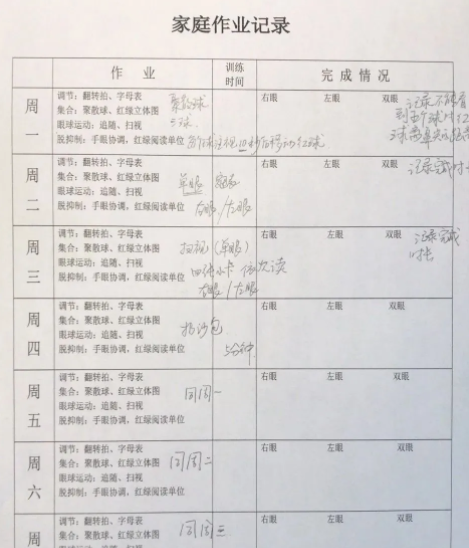 家庭作业记录
作 业 训练时间 完成情况
周一
调节：翻转拍、字母表 聚散球
集合：聚散球、红绿立体图 三球
眼球运动：追随、扫视
脱抑制：手眼协调，红绿阅读单位
右眼 左眼 双眼
记录不能看
周二
调节：翻转拍、字母表
集合：聚散球、红绿立体图 单眼
眼球运动：追随、扫视
脱抑制：手眼协调，红绿阅读单位 右眼/左眼
右眼 左眼 双眼
记录完成时
周三
调节：翻转拍、字母表
集合：聚散球、红绿立体图 扫视（单眼）
眼球运动：追随、扫视 四张小卡 依次读
脱抑制：手眼协调，红绿阅读单位 右眼/左眼
右眼 左眼 双眼
记录完成
时长
周四
调节：翻转拍、字母表
集合：聚散球、红绿立体图 沙包
眼球运动：追随、扫视
脱抑制：手眼协调，红绿阅读单位 5分钟
右眼 左眼 双眼
周五
调节：翻转拍、字母表
集合：聚散球、红绿立体图 同周一
眼球运动：追随、扫视
脱抑制：手眼协调，红绿阅读单位
右眼 左眼 双眼
周六
调节：翻转拍、字母表
集合：聚散球、红绿立体图 同周二
眼球运动：追随、扫视
脱抑制：手眼协调，红绿阅读单位
右眼 左眼 双眼
周
调节：翻转拍、字母表
集合：聚散球、红绿立体图 同周三
眼球运动：追随、扫视
右眼 左眼 双眼